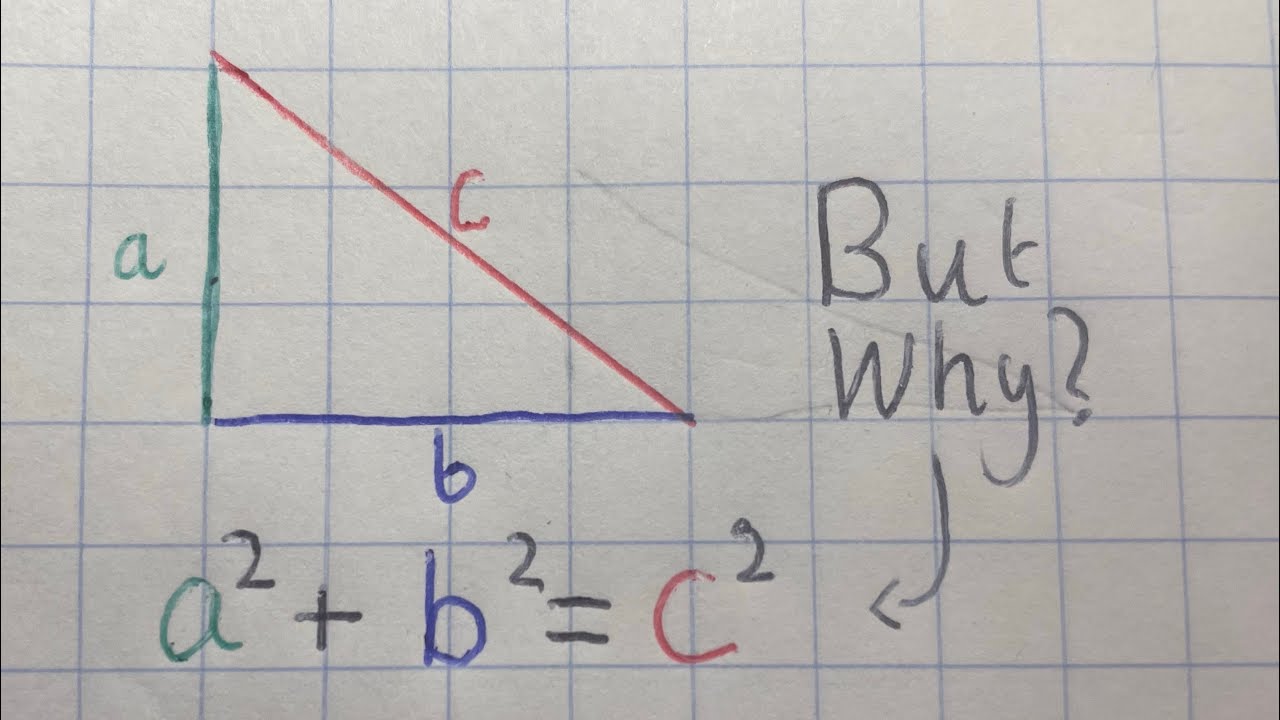 a
c
b
But
Why?
a² + b² = c²